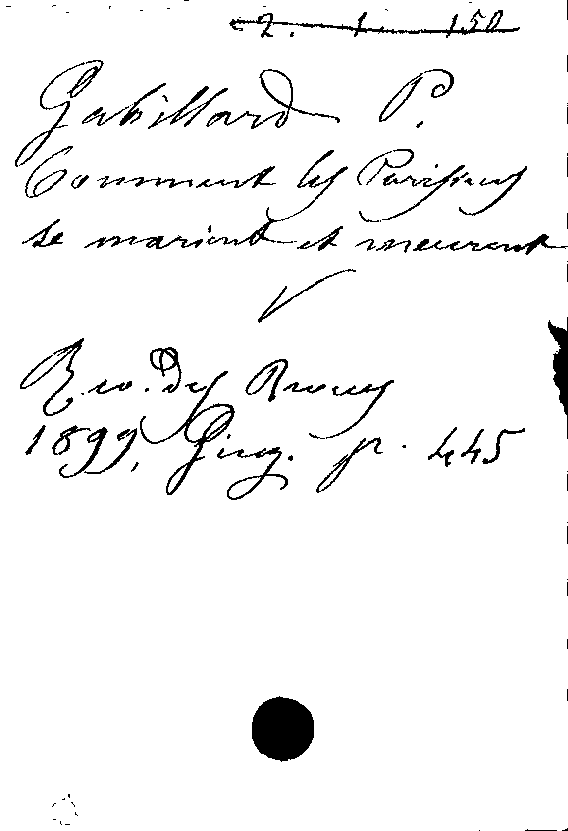 2. 1. 150
Gabillard P.
Comment les Parisiens
se marient et meurent
Rev. des Revues
1899, p. 445